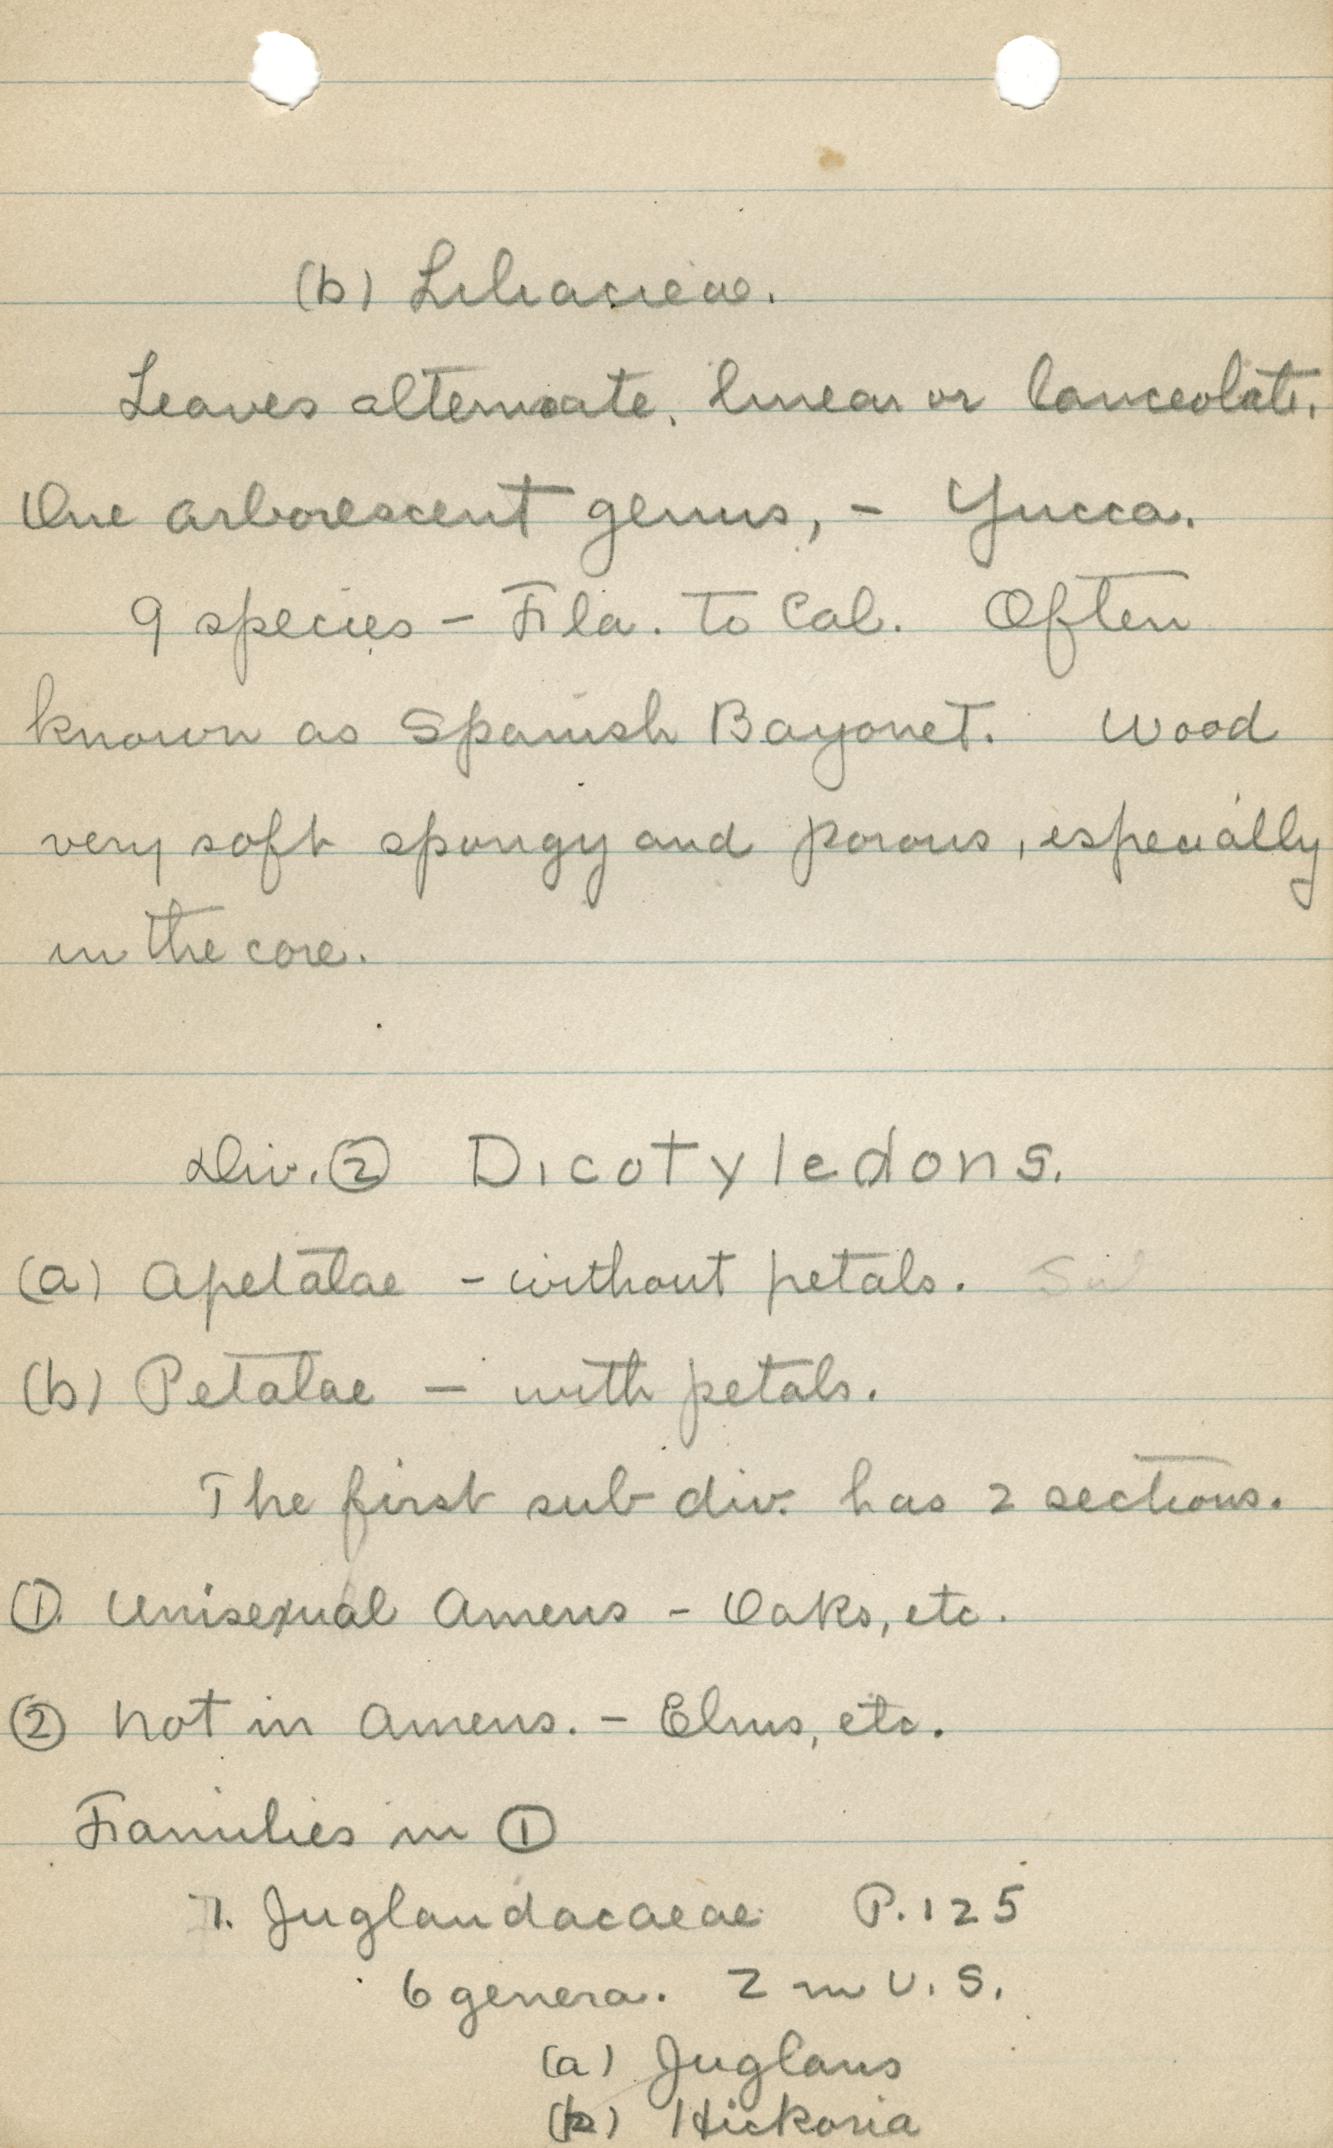 (b) Liliaceae.
Leaves alternate, linear or lanceolate.
One arborescent genus, - Yucca.
9 species - Fla. to Cal. Often
known as Spanish Bayonet. Wood
very soft spongy and porous, especially
in the core.
Div. ② Dicotyledons.
(a) Apetalae - without petals.
(b) Petalae - with petals.
The first sub div. has 2 sections.
①. Unisexual Amens - Oaks, etc.
② Not in Amens. - Elms, etc.
Families in ①
1. Juglandacaeae P. 125
6 genera. 2 in U. S.
(a) Juglans
(b) Hickoria